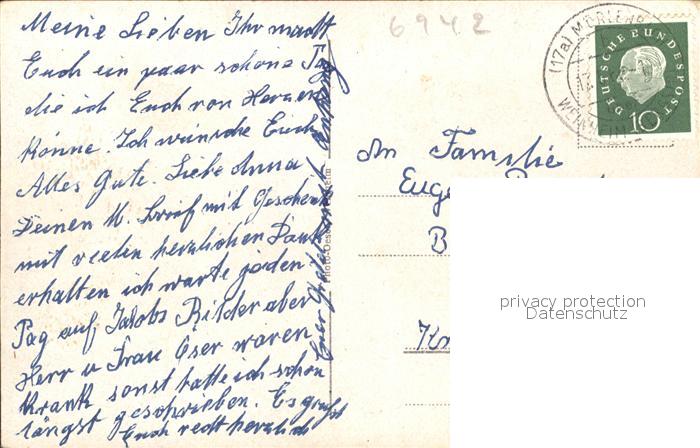 Meine Lieben Ihr macht
Euch ein paar schöne Tag
die ich Euch von Herzen
könne. Ich wünsche Euch
Alles Gute. Liebe Anna
Deinen Brief mit Geschenk
mit vielen herzlichen Dank
erhalten ich warte jeden
Tag auf Jakobs Bilder aber
Herr u Frau Eser waren
Krank sonst hatte ich schon
längst geschrieben. Es grüßt
Euch recht herzlich
Euer
6942
(17a) MÖRLENB
WEINHEIM
DEUTSCHE BUNDESPOST
10
An Familie
Euge
B
privacy protection
Datenschutz